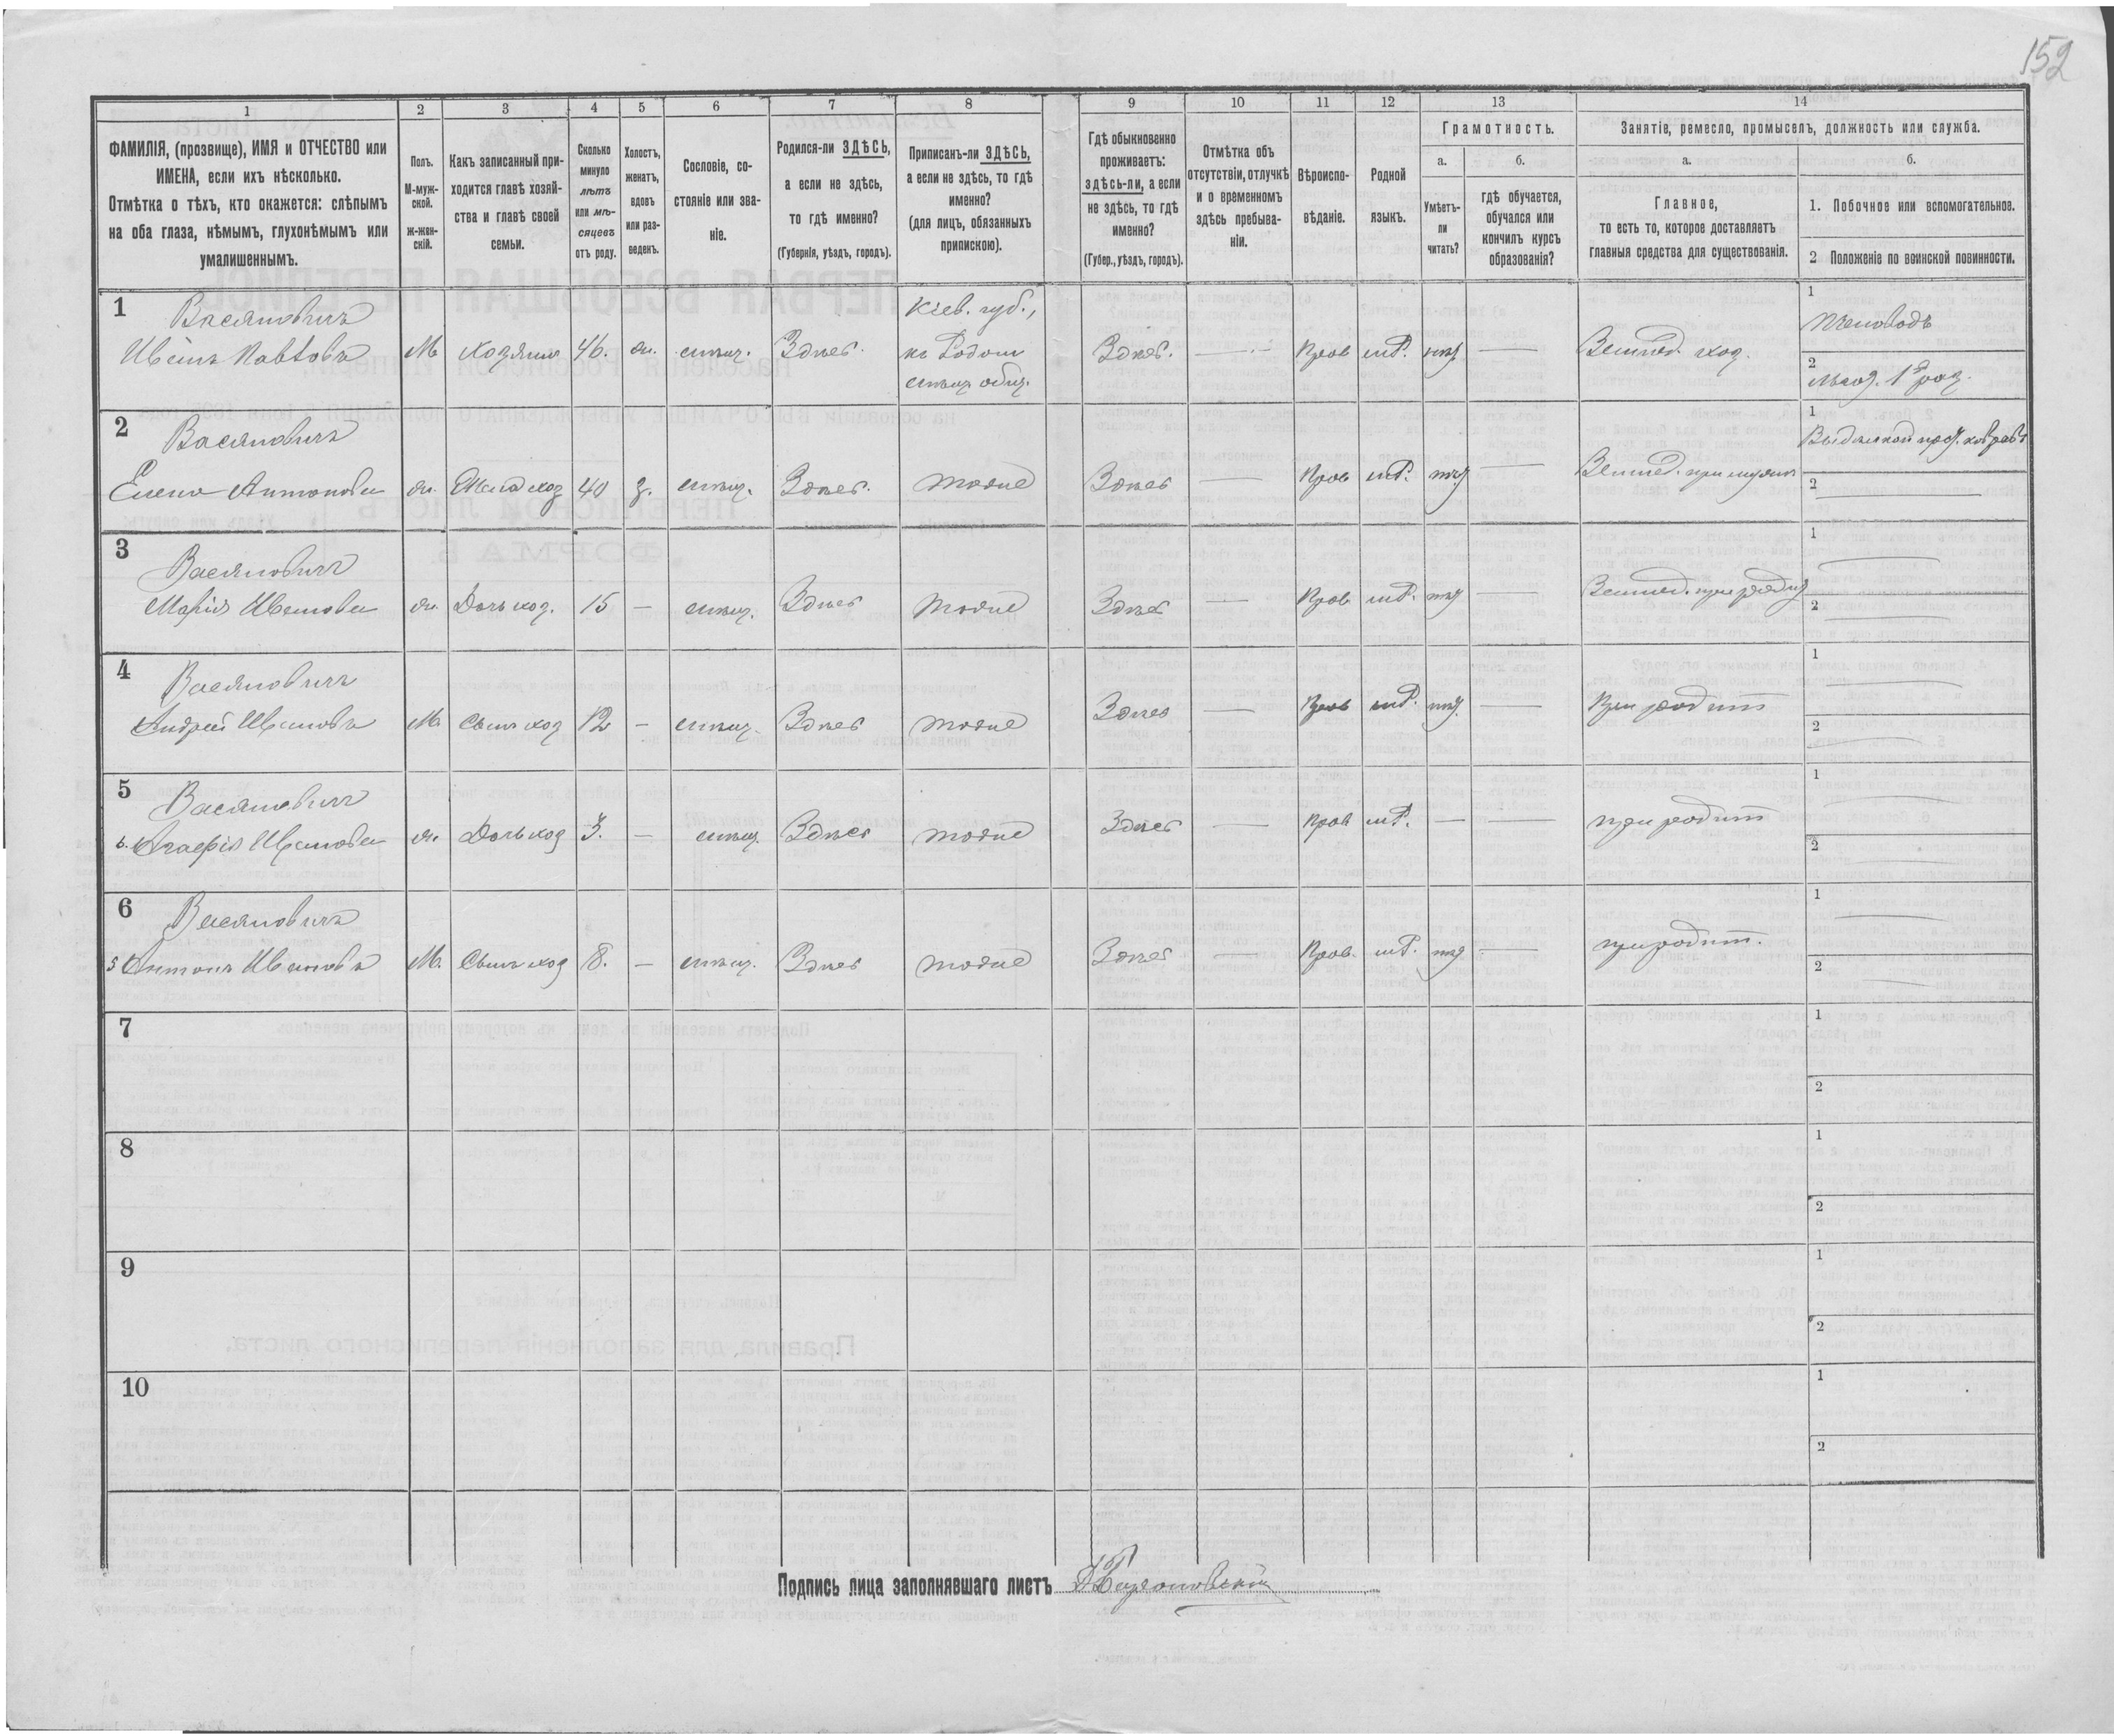 152
1
2
3
4
5
6
7
8
9
10
11
12
13
14
ФАМИЛІЯ, (прозвище), ИМЯ и ОТЧЕСТВО или
ИМЕНА, если ихъ нѣсколько.
Отмѣтка о тѣхъ, кто окажется: слѣпымъ
на оба глаза, нѣмымъ, глухонѣмымъ или
умалишеннымъ.
Полъ.
М-муж-
ской.
ж-жен-
скій.
Какъ записанный при-
ходится главѣ хозяй-
ства и главѣ своей
семьи.
Сколько
минуло
лѣтъ
или мѣ-
сяцевъ
отъ роду.
Холостъ,
женатъ,
вдовъ
или раз-
веденъ.
Сословіе, со-
стояніе или зва-
ніе.
Родился-ли ЗДѢСЬ,
а если не здѣсь,
то гдѣ именно?
(Губернія, уѣздъ, городъ).
Приписанъ-ли ЗДѢСЬ,
а если не здѣсь, то гдѣ
именно?
(для лицъ, обязанныхъ
припискою).
Гдѣ обыкновенно
проживаетъ:
здѣсь-ли, а если
не здѣсь, то гдѣ
именно?
(Губер., уѣздъ, городъ).
Отмѣтка объ
отсутствіи, отлучкѣ
и о временномъ
здѣсь пребыва-
ніи.
Вѣроиспо-
вѣданіе.
Родной
языкъ.
Грамотность.
а.
Умѣетъ-
ли
читать?
б.
гдѣ обучается,
обучался или
кончилъ курсъ
образованія?
Занятіе, ремесло, промыселъ, должность или служба.
а.
Главное,
то есть то, которое доставляетъ
главныя средства для существованія.
б.
1. Побочное или вспомогательное.
2 Положеніе по воинской повинности.
1
Васяновичъ
Иванъ Павловъ
М
хозяинъ
46.
ж.
Здѣсь.
Кіев. губ.,
Здѣсь.
Прав
Землед. хоз.
1
пчеловодъ
2
2
Васяновичъ
Елена Антонова
ж.
Жена хоз
40
з.
Здѣсь.
тоже
Здѣсь
Прав
Землед. при мужѣ
1
2
3
Васяновичъ
Марія Иванова
ж.
Дочь хоз.
15
Здѣсь
тоже
Здѣсь
Прав
1
2
4
Васяновичъ
Андрей Ивановъ
М.
Сынъ хоз
12
Здѣсь
тоже
Здѣсь
Прав
При родит
1
2
5
Васяновичъ
6. Агафія Иванова
ж.
Дочь хоз
3.
Здѣсь
тоже
Здѣсь
Прав
при родит
1
2
6
Васяновичъ
5 Антонъ Ивановъ
М.
Сынъ хоз
8.
Здѣсь
тоже
Здѣсь
Прав.
при родит.
1
2
7
1
2
8
1
2
9
1
2
10
1
2
Подпись лица заполнявшаго листъ